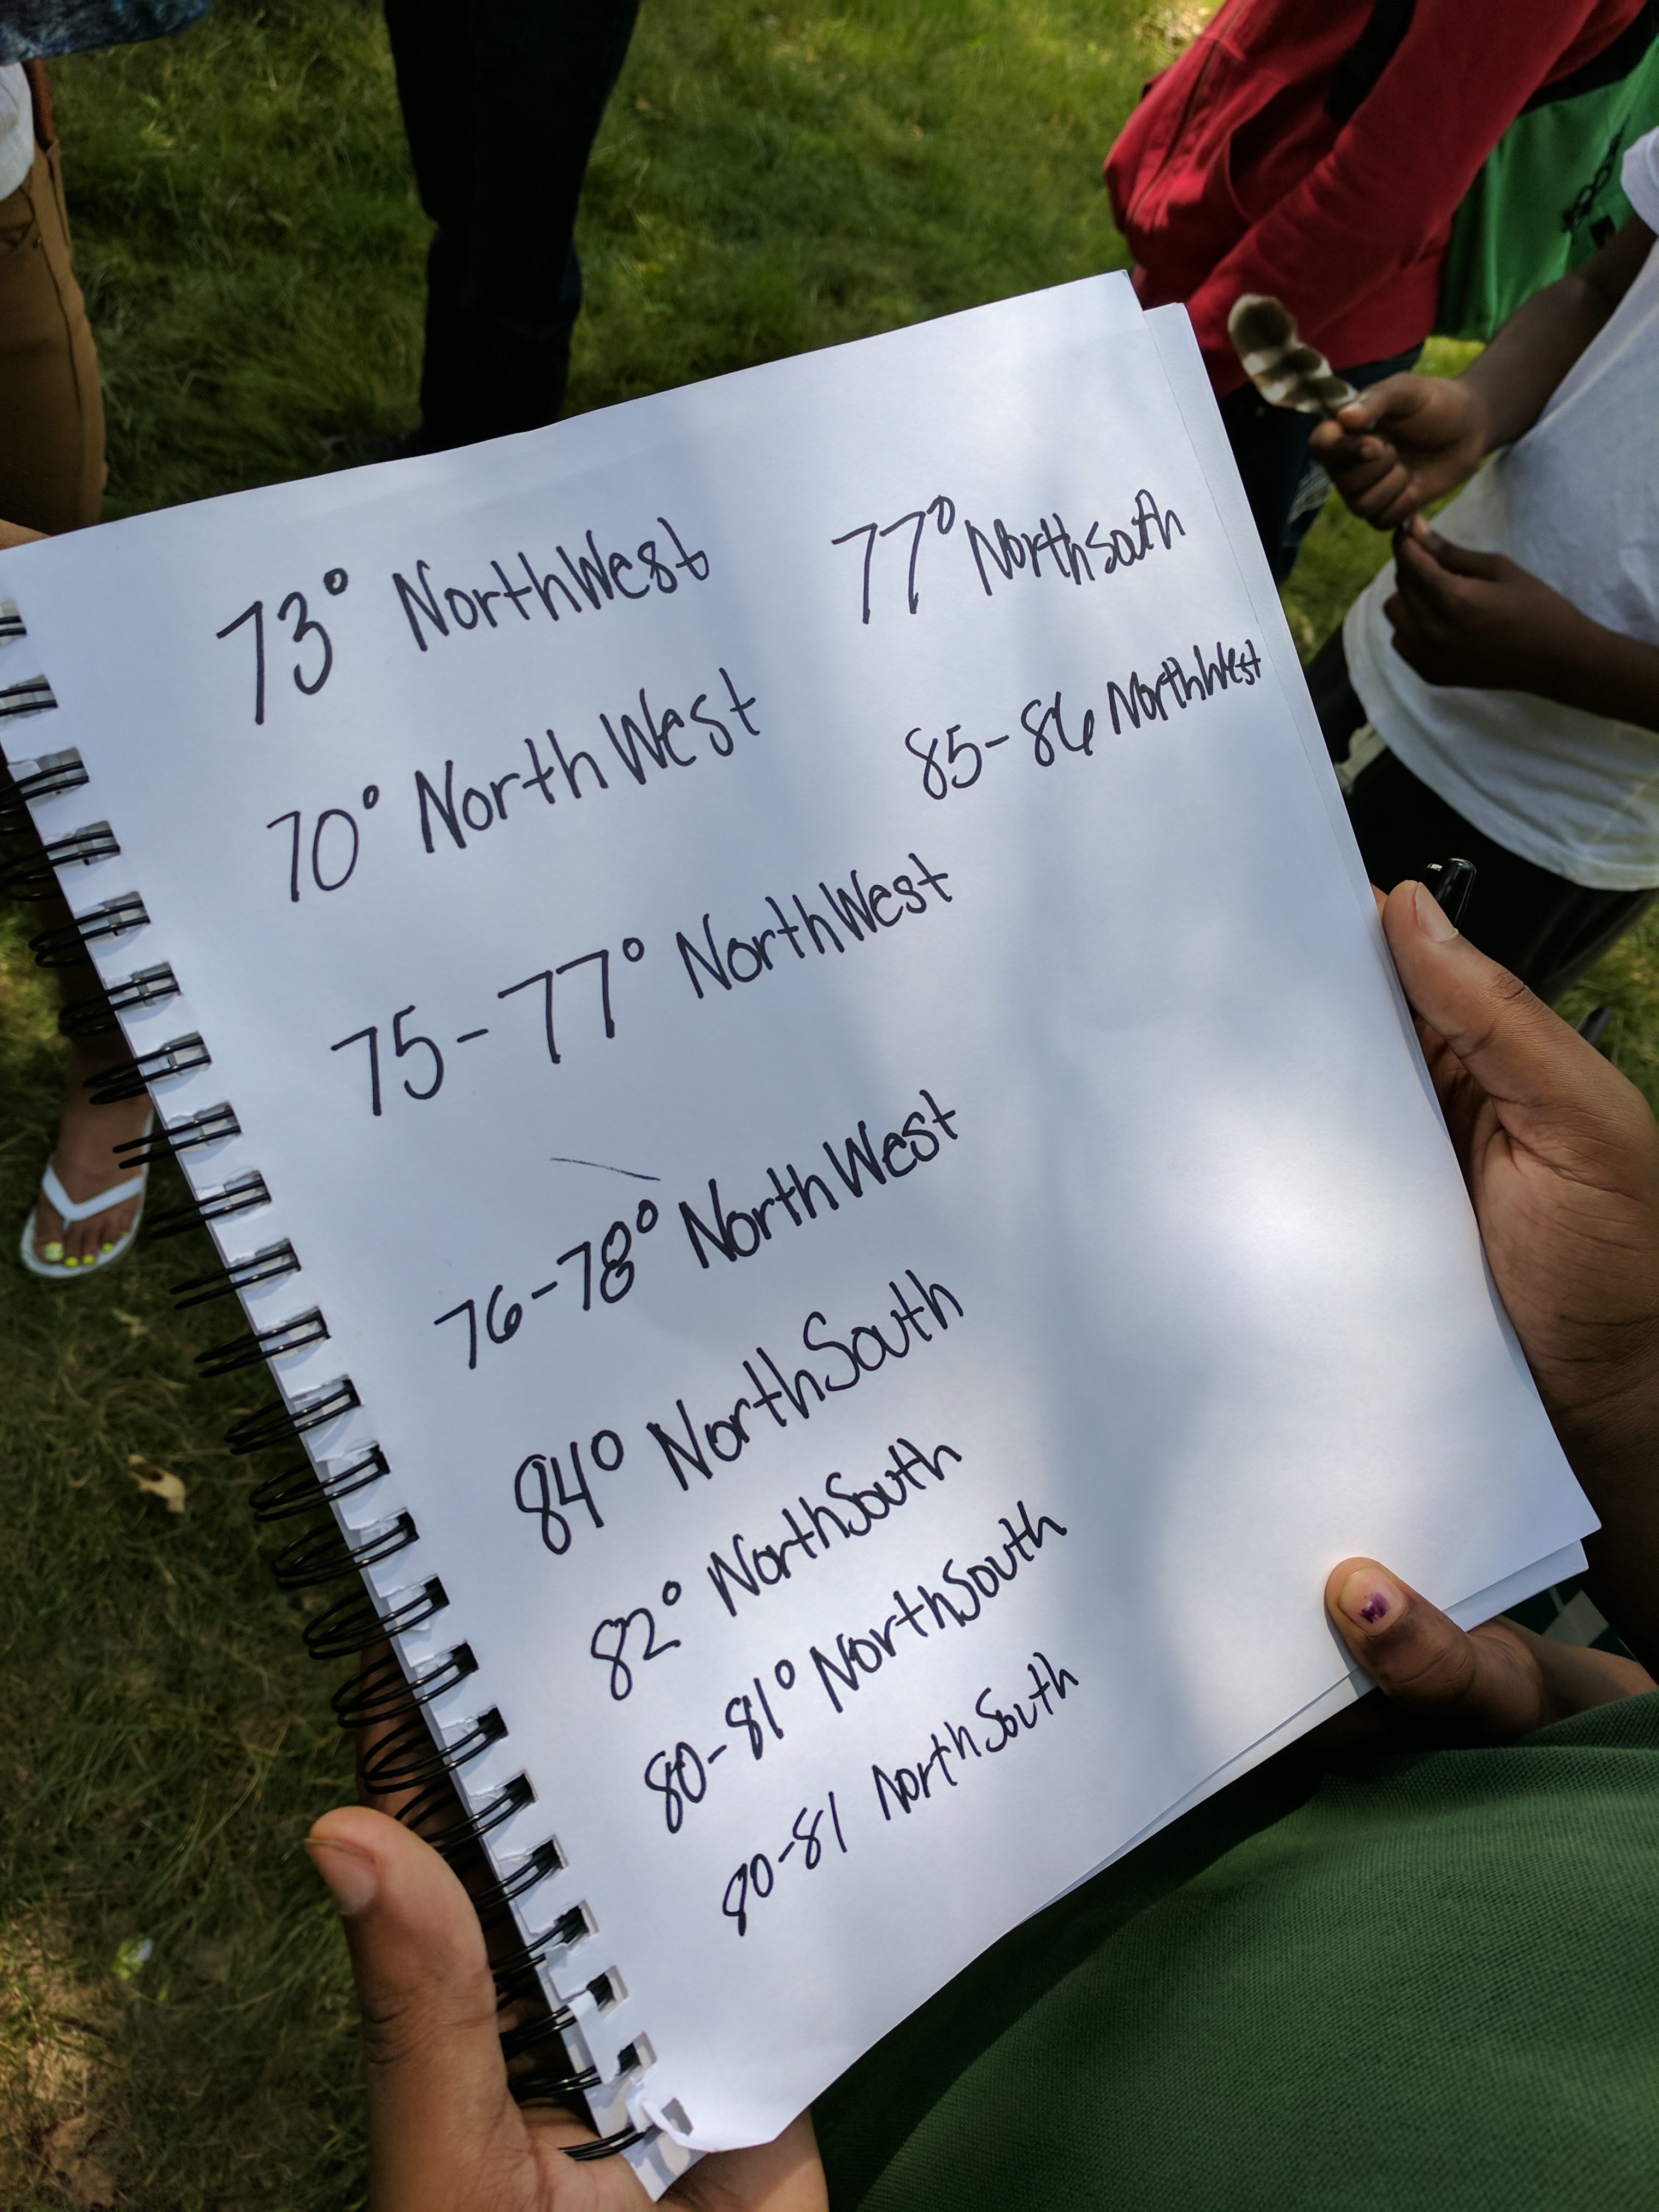 73° NorthWest
70° North West
75-77° NorthWest
76-78° North West
84° NorthSouth
82° NorthSouth
80-81° NorthSouth
80-81 North South
77° Northsouth
85-86 NorthWest